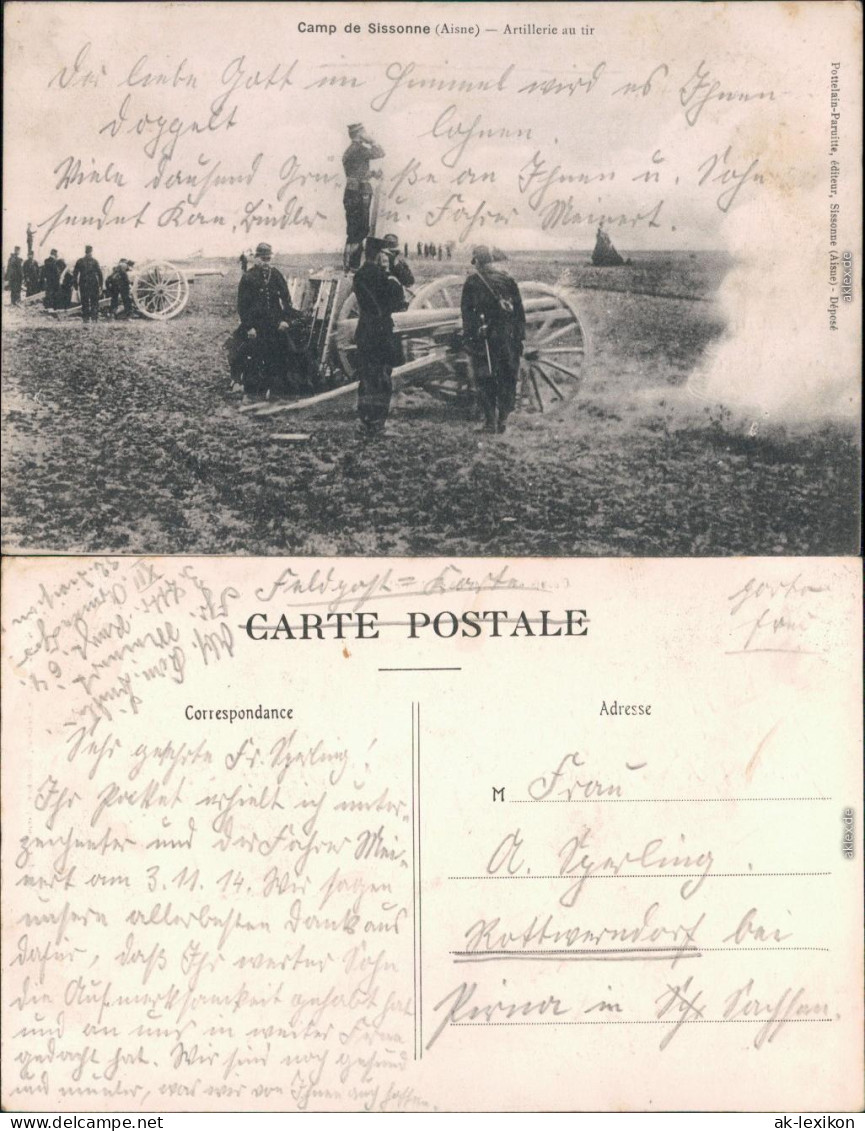 Camp de Sissonne (Aisne) — Artillerie au tir
Der liebe Gott im Himmel wird es Ihnen
doppelt lohnen.
Viele tausend Grüße an Ihnen u. Sohn
sendet Kan. Bindler u. Fahrer Meinert.
Pottelain-Paruitte, éditeur, Sissonne (Aisne) - Déposé
akpool.de
Feldpost=Karte.
porto
frei
CARTE POSTALE
Abs. Kan.
Correspondance
Adresse
Sehr geehrte Fr. Sperling!
Ihr Packet erhielt ich unter-
zeichneter und der Fahrer Mei-
nert am 3.11.14. Wir sagen
unsern allerbesten Dank aus
dafür, daß Ihr werter Sohn
die Aufmerksamkeit gehabt hat
und an uns in weiter Ferne
gedacht hat. Wir sind noch gesund
und munter, was wir von Ihnen auch hoffen.
M Frau
A. Sperling.
Rottwerndorf bei
Pirna in Sachsen.
akpool.de
www.delcampe.net
ak-lexikon